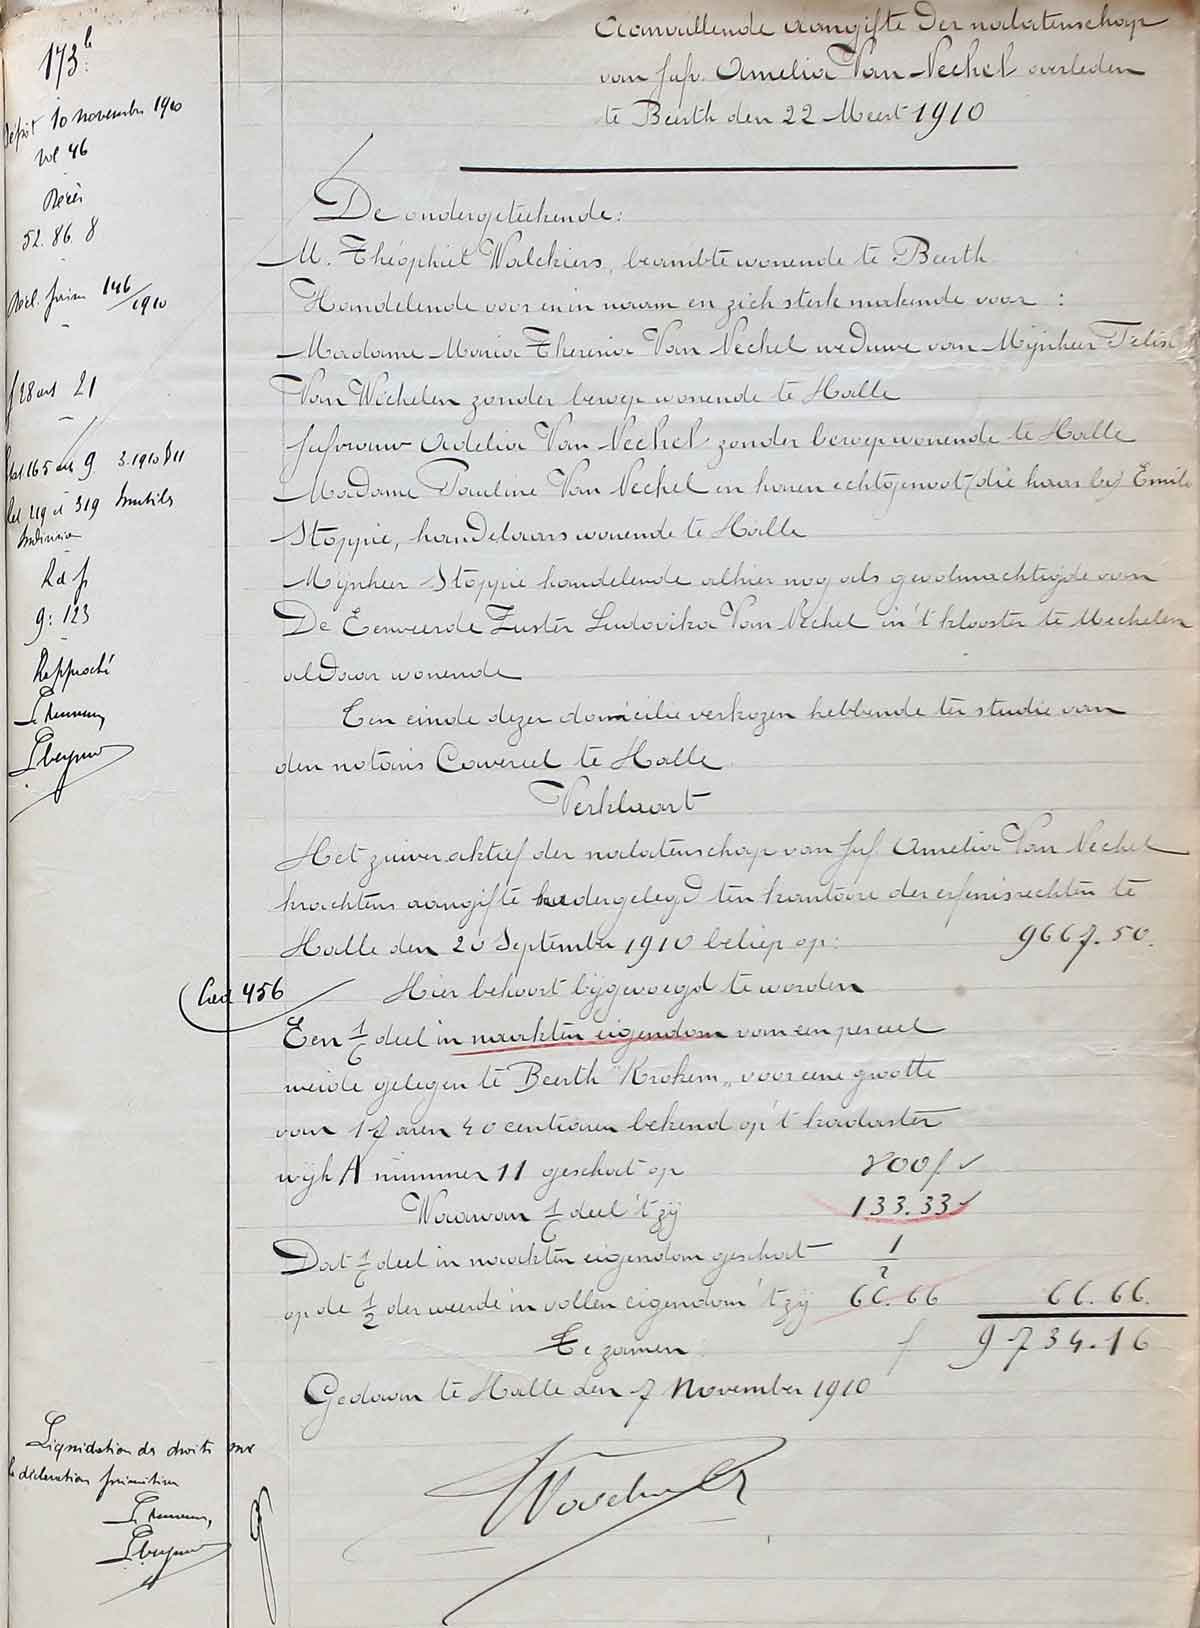 Aanvullende aangifte der nalatenschap
van Jufv. Amelia Van Nechel overleden
te Beerth den 22 Meert 1910
173b
Dépôt 10 novembre 1910
vol 46
Décès
52. 86. 8
Décl. prim 146/1910
De ondergeteekende:
M. Théophiel Walckiers, beambte wonende te Beerth
Handelende voor en in naam en zich sterk makende voor :
Madame Maria Theresia Van Nechel weduwe van Mijnheer Felix
Van Wichelen zonder beroep wonende te Halle
Jufvrouw Adelia Van Nechel zonder beroep wonende te Halle
Madame Pauline Van Nechel en haren echtgenoot (die haar bij) Emile
Stoppie, handelaars wonende te Halle
Mijnheer Stoppie handelende alhier nog als gevolmachtigde van
De Eerweerde Zuster Ludovika Van Nechel in 't klooster te Mechelen
aldaar wonende
Ten einde dezer domicilie verkozen hebbende ter studie van
den notaris Covereel te Halle
Verklaart
Het zuiver aktief der nalatenschap van Juf. Amelia Van Nechel
krachtens aangifte nedergelegd ten kantoire der erfenisrechten te
Halle den 20 September 1910 beliep op: 9667.50.
456
Hier behoort bijgevoegd te worden
Een 1/6 deel in naakten eigendom van een perceel
weide gelegen te Beerth "Krokem" voor eene grootte
van 17 aren 40 centiaren bekend op 't kadaster
wijk A nummer 11 geschat op 800f
Waarvan 1/6 deel 't zij 133.33
Dat 1/6 deel in naakten eigendom geschat 1/2
op de 1/2 der weerde in vollen eigendom 't zij 66.66 66.66.
Te zamen f 9734.16
Gedaan te Halle den 7 November 1910
21
Rd f
g: 123
Rapproché
Liquidation des droits sur
la déclaration primitive